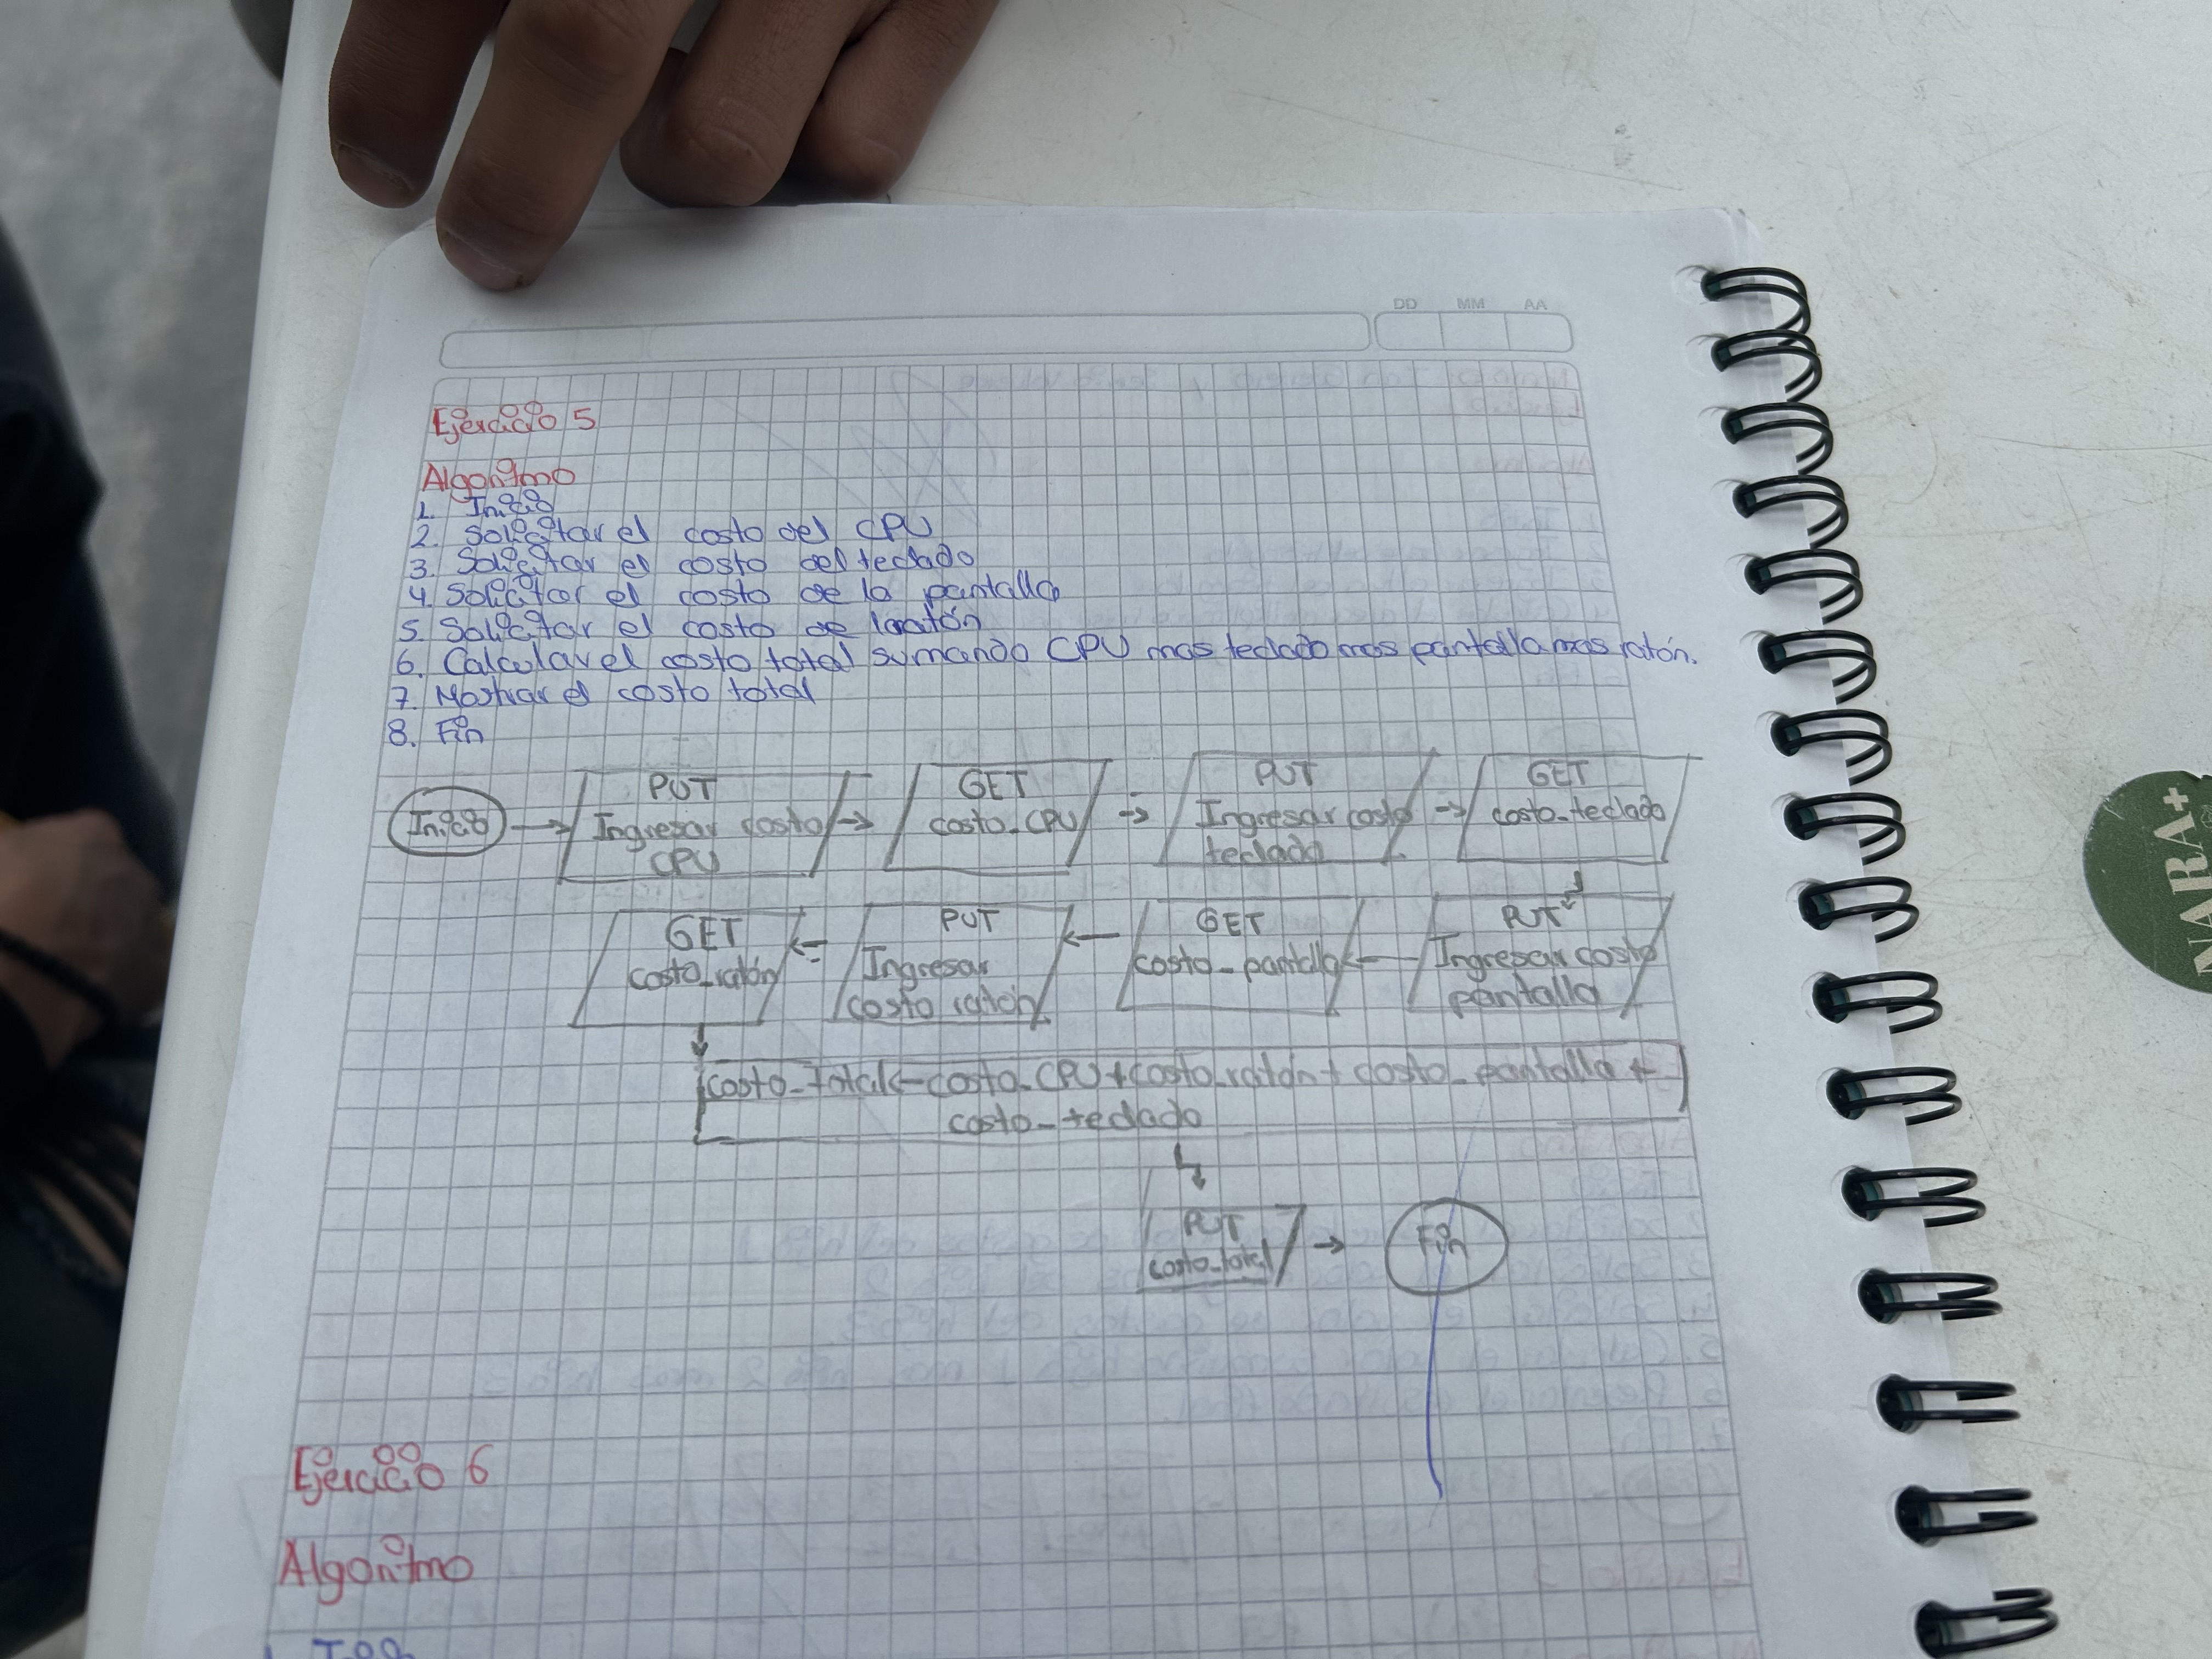 DD MM AA
Ejercicio 5
Algoritmo
1. Inicio
2. Solicitar el costo del CPU
3. Solicitar el costo del teclado
4. Solicitar el costo de la pantalla
5. Solicitar el costo de ratón
6. Calcular el costo total sumando CPU mas teclado mas pantalla mas ratón.
7. Mostrar el costo total
8. Fin
Inicio
PUT
Ingresar costo
CPU
GET
costo_CPU
PUT
Ingresar costo
teclado
GET
costo_teclado
PUT
Ingresar costo
pantalla
GET
costo_pantalla
PUT
Ingresar
costo ratón
GET
costo_ratón
costo_total←costo_CPU+costo_ratón+costo_pantalla+
costo_teclado
PUT
costo_total
Fin
Ejercicio 6
Algoritmo
NARA+